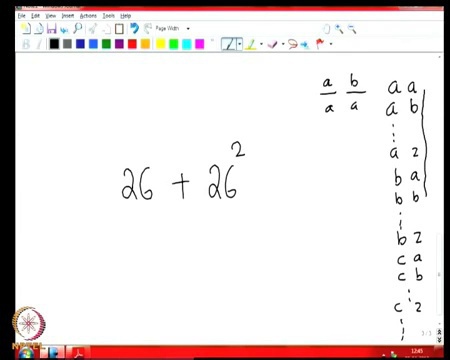 File Edit View Insert Actions Tools Help
Page Width
a b a a
a a a b
⋮
a z
b a
b b
⋮
b z
c a
c b
⋮
c z
⋮
26 + 26²
3/3
12:45